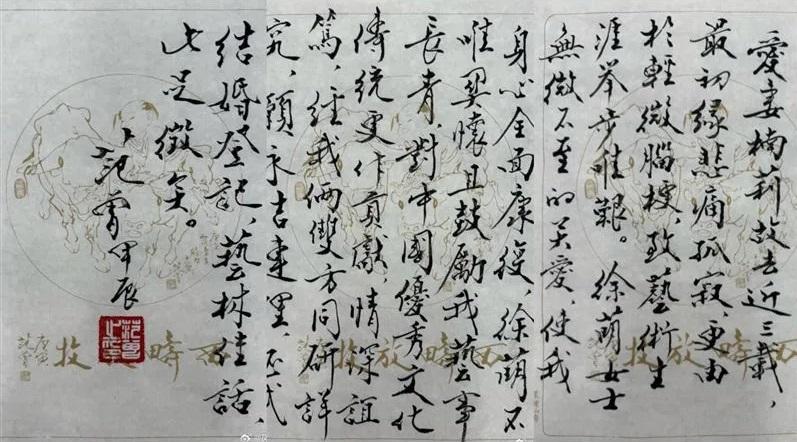 愛妻楠莉故去近三載，
最初緣悲痛孤寂，更由
於輕微腦梗，致藝術生
涯舉步唯艱。徐萌女士
無微不至的关愛，使我
身心全面康復，徐萌不
唯関懷且鼓勵我藝事
長青，對中國優秀文化
傳統更作貢獻，情深誼
篤，經我倆雙方同研詳
究，永吉東里，正式
結婚登記，藝林佳話，
此足徵矣。
范曾甲辰
西疇放牧